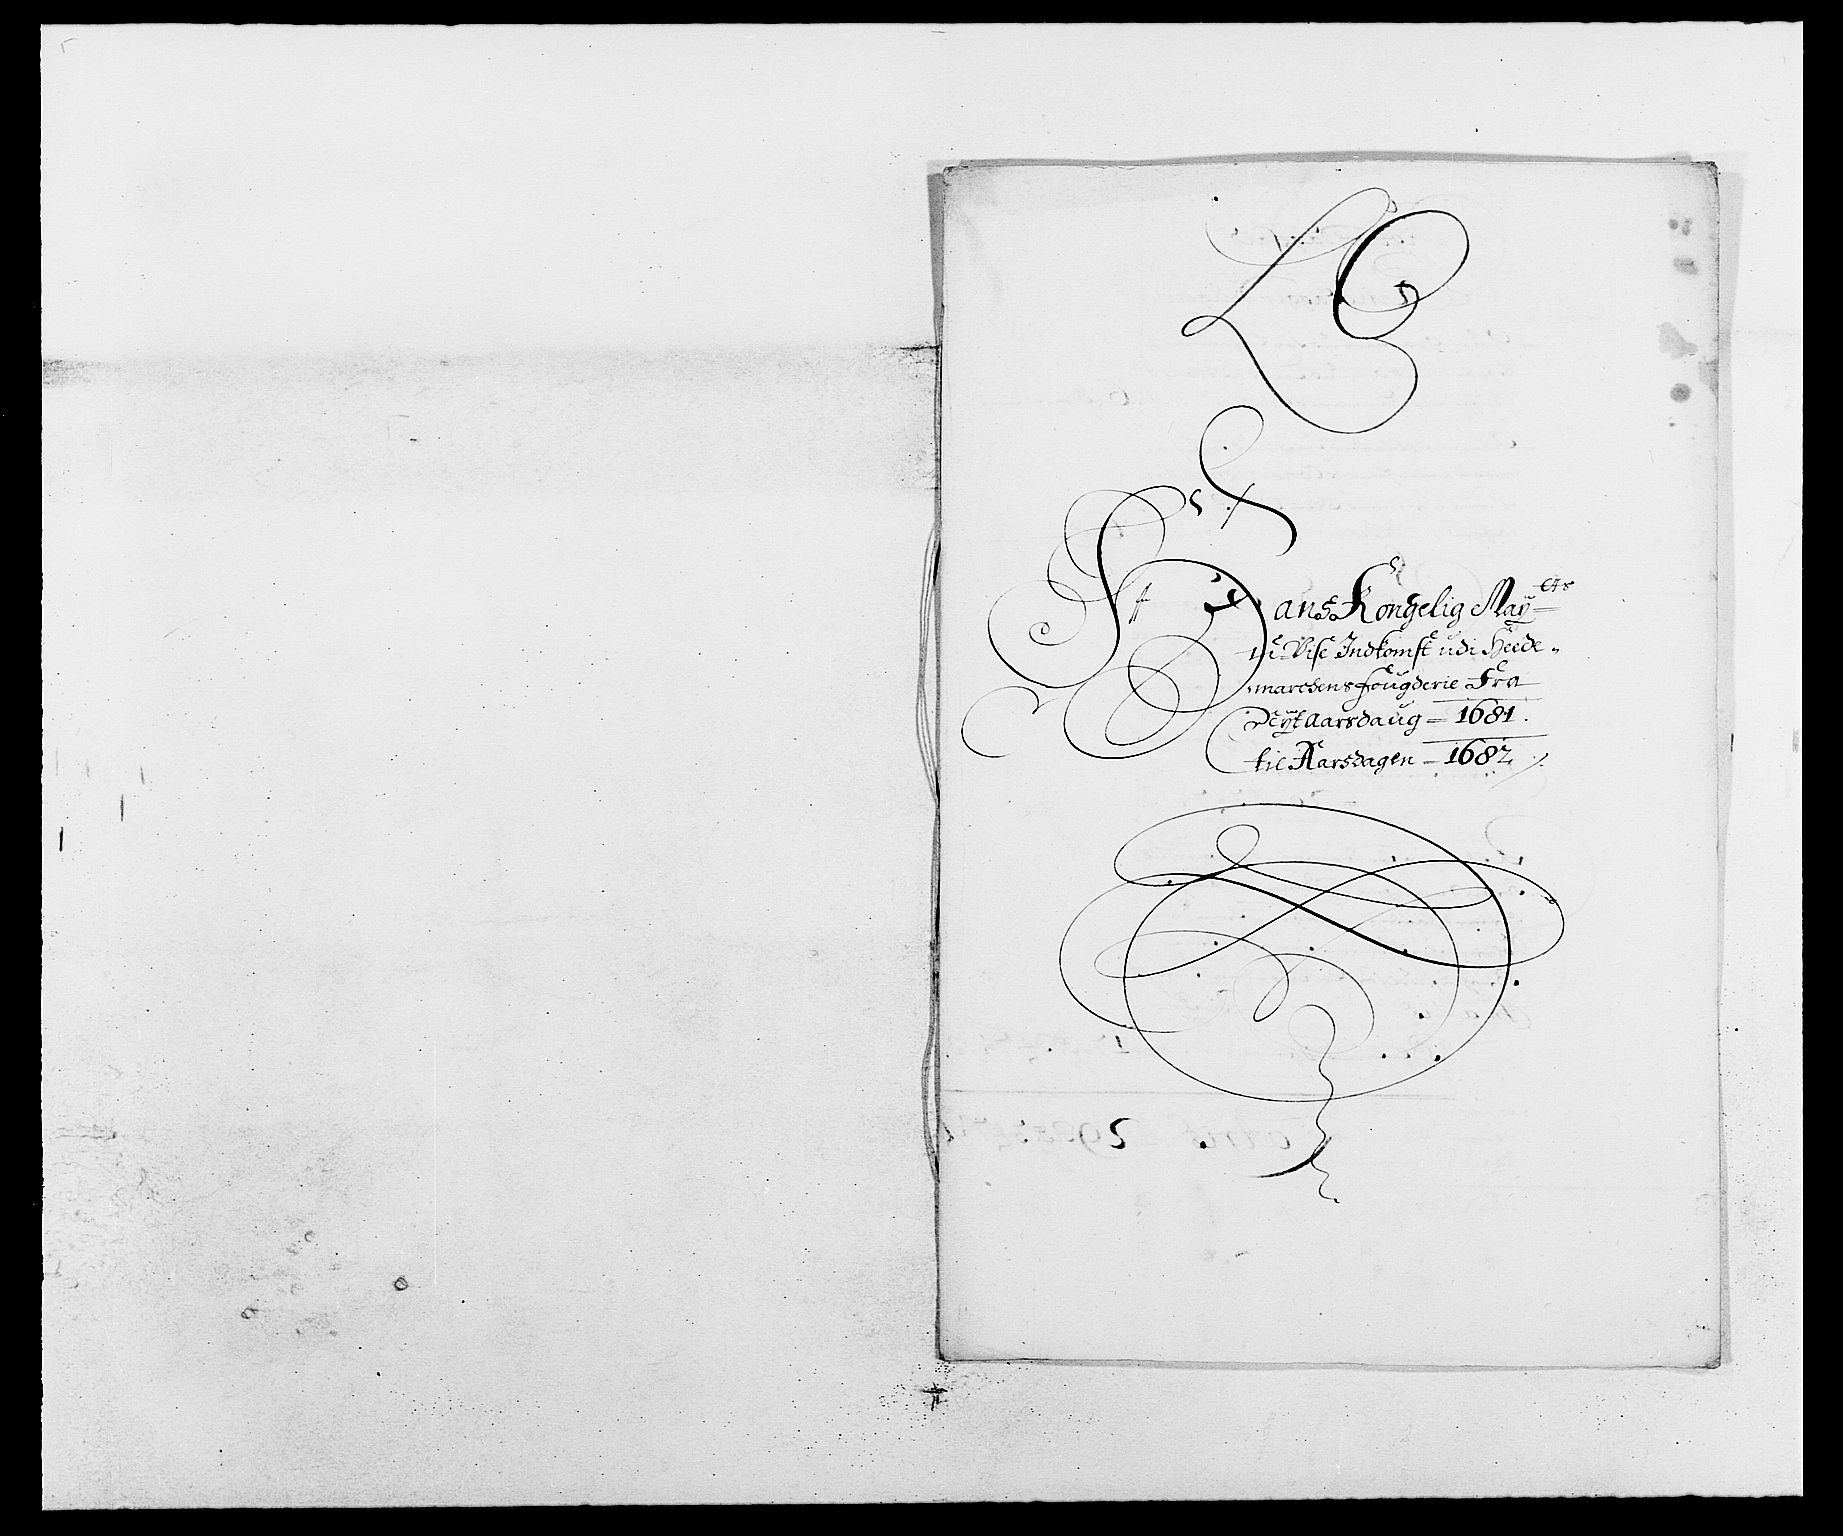 Hans Kongelig Maÿ<sup>etz</sup>
Vise Indkomst udi Heede-
marchens fougderie Fra
Nÿt Aarsdaug 1681.
til Aarsdagen 1682